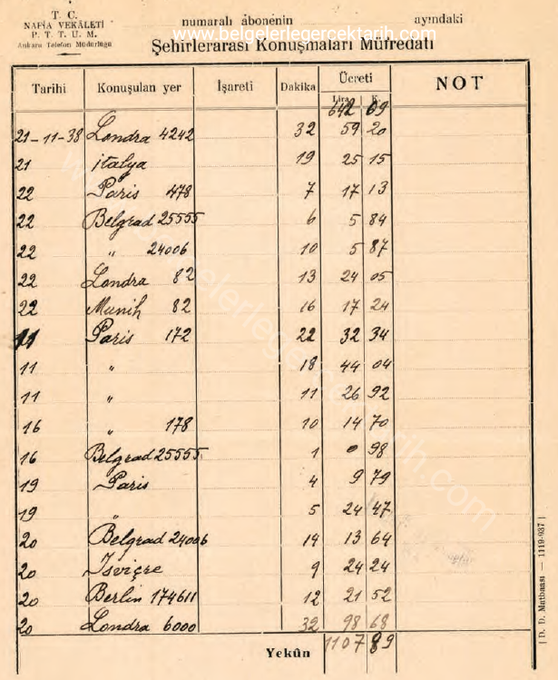 T. C.
NAFİA VEKÂLETİ
P. T. T. U. M.
Ankara Telefon Müdürlüğü
numaralı abonenin ayındaki
www.belgelerlegercektarih.com
Şehirlerarası Konuşmaları Müfredatı
Tarihi Konuşulan yer İşareti Dakika Ücreti NOT
Lira K.
642 09
21-11-38 Londra 4242 32 59 20
21 italya 19 25 15
22 Paris 478 7 17 13
22 Belgrad 25555 6 5 84
22 " 24006 10 5 87
22 Londra 82 13 24 05
22 Munih 82 16 17 24
11 Paris 172 22 32 34
11 " 18 44 04
11 " 11 26 92
16 " 178 10 14 70
16 Belgrad 25555 1 0 98
19 Paris 4 9 79
19 " 5 24 47
20 Belgrad 24006 14 13 64
20 İsviçre 9 24 24
20 Berlin 174611 12 21 52
20 Londra 6000 32 98 68
Yekûn 1107 89
( D. D. Matbaası — 1119-937 )
www.belgelerlegercektarih.com